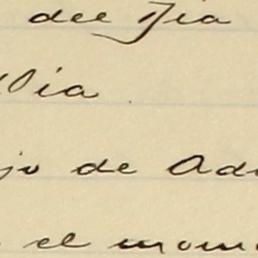 del Dia
Dia.
jo de Ad
el mom